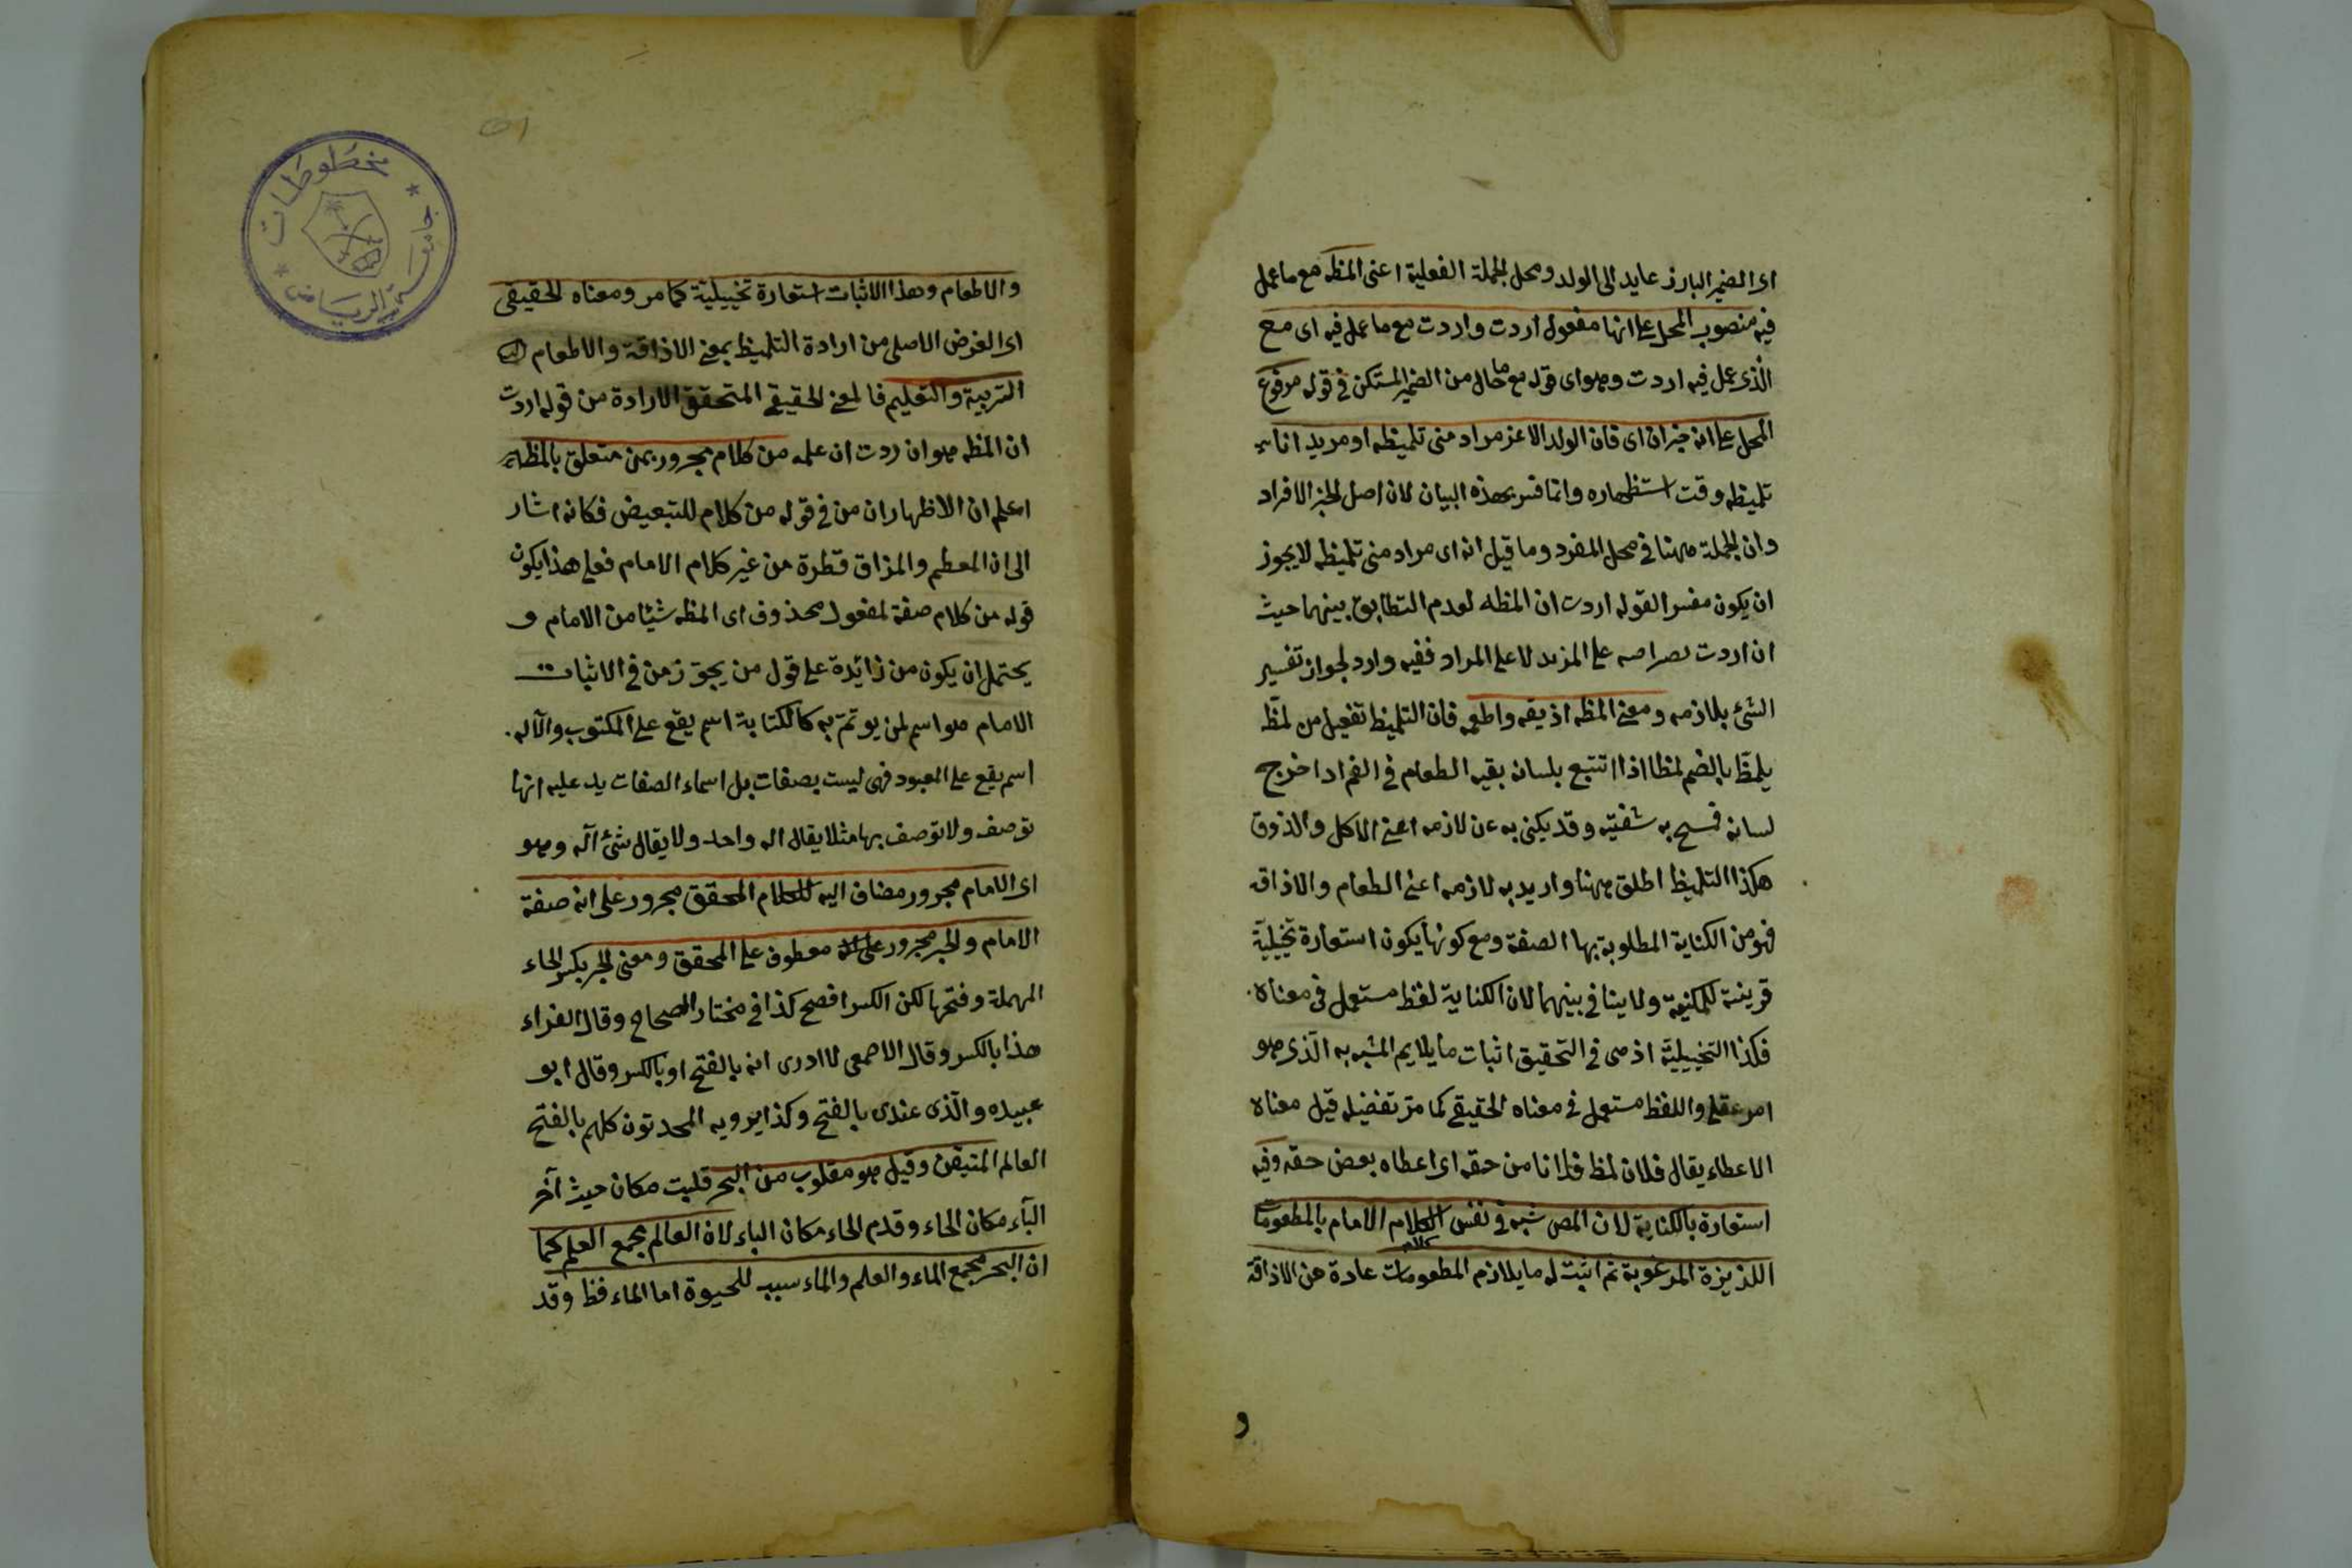 اى الضمير البارز عايد الى الولد ومحل الجملة الفعلية اعنى المظه مع ما عمل
فيه منصوب المحل على انها مفعول اردت واردت مع ما عمل فيه اى مع
الّذى عمل فيه اردت وهو اى قوله مع ما حال من الضمير المستكن فى قوله مرفوع
المحل على انه خبر ان اى فان الولد الاعز مراد منى تلميظه او مريد انا
تلميظه وقت استظهاره وانما فسر بهذه البيان لان اصل الخبر الافراد
وان الجملة ههنا فى محل المفرد وما قيل انه اى مراد منى تلميظه لا يجوز
ان يكون مفسرا لقوله اردت ان المظه لعدم التطابق بينهما حيث
ان اردت على المريد لا على المراد ففيه وارد لجواز تفسير
الشئ بلازمه ومعنى المظه اذيقه واطعمه فان التلميظ تفعيل من لمظ
يلمظ بالضم لمظا اذا تتبع بلسانه بقيه الطعام فى الفم اذا خرج
لسانه فمسح به شفتيه وقد يكنى به عن لازمه اعنى الاكل والذوق
هكذا التلميظ اطلق ههنا واريد به لازمه اعنى الطعام والاذاقه
فهو من الكناية المطلوبة بها الصفة ومع كونها يكون استعارة تخيلية
قرينة للمكنية ولا ينافى بينهما لان الكناية لفظ مستعمل فى معناه
فكذا التخييلية اذ هى فى التحقيق اثبات ما يلايم المشبه به الّذى هو
امر عقلى واللفظ مستعمل فى معناه الحقيقى كما مرّ تفضيله قيل معناه
الاعطاء يقال فلان لمظ فلانا من حقه اى اعطاه بعض حقه وفيه
استعارة بالكناية لان المص شبه فى نفس الكلام الامام بالمطعومات
كلام
اللذيزة المرغوبة ثم اثبت له ما يلازم المطعومات عادة من الاذاقة
و
والاطعام وهذا الاثبات استعارة تخييلية كما مر ومعناه الحقيقى
اى الغرض الاصلى من ارادة التلميظ بمعنى الاذاقة والاطعام
التربية والتعليم فالمعنى الحقيقى المتحقق الارادة من قوله اردت
ان المظه هو ان ردت ان علمه من كلام مجرور بمن متعلق بالمظه
اعلم ان الاظهار ان من فى قوله من كلام للتبعيض فكانه اشار
الى ان المعطم والمزاق قطرة من غير كلام الامام فعلى هذا يكون
قوله من كلام صفة لمفعول محذوف اى المظه شيئا من الامام و
يحتمل ان يكون من زائدة على قول من يجوّز من فى الاثبات
الامام هو اسم لمن يوتمّ به كالكتابة اسم يقع على المكتوب والآله
اسم يقع على المعبود فهى ليست بصفات بل اسماء الصفات يد عليه انها
توصف ولا توصف بها مثلا يقال اله واحد ولا يقال شئ آله وهو
اى الامام مجرور مضاف اليه للكلام المحقق مجرور على انه صفة
الامام والحبر مجرور على انه معطوف على المحقق ومعنى الحبر بكسر الحاء
المهملة وفتحها لكن الكسر افصح كذا فى مختار الصحاح وقال الفراء
هذا بالكسر وقال الاصمعى لا ادرى انه بالفتح او بالكسر وقال ابو
عبيده والّذى عندى بالفتح وكذا يرويه المحدثون كلهم بالفتح
العالم المتيقن وقيل هو مقلوب من البحر قلبت مكان حيث آخر
البآء مكان الحاء وقدم الحاء مكان الباء لان العالم مجمع العلم كما
ان البحر مجمع الماء والعلم والماء سبب للحيوة اما الماء فظ وقد
مخطوطات
جامعة الرياض